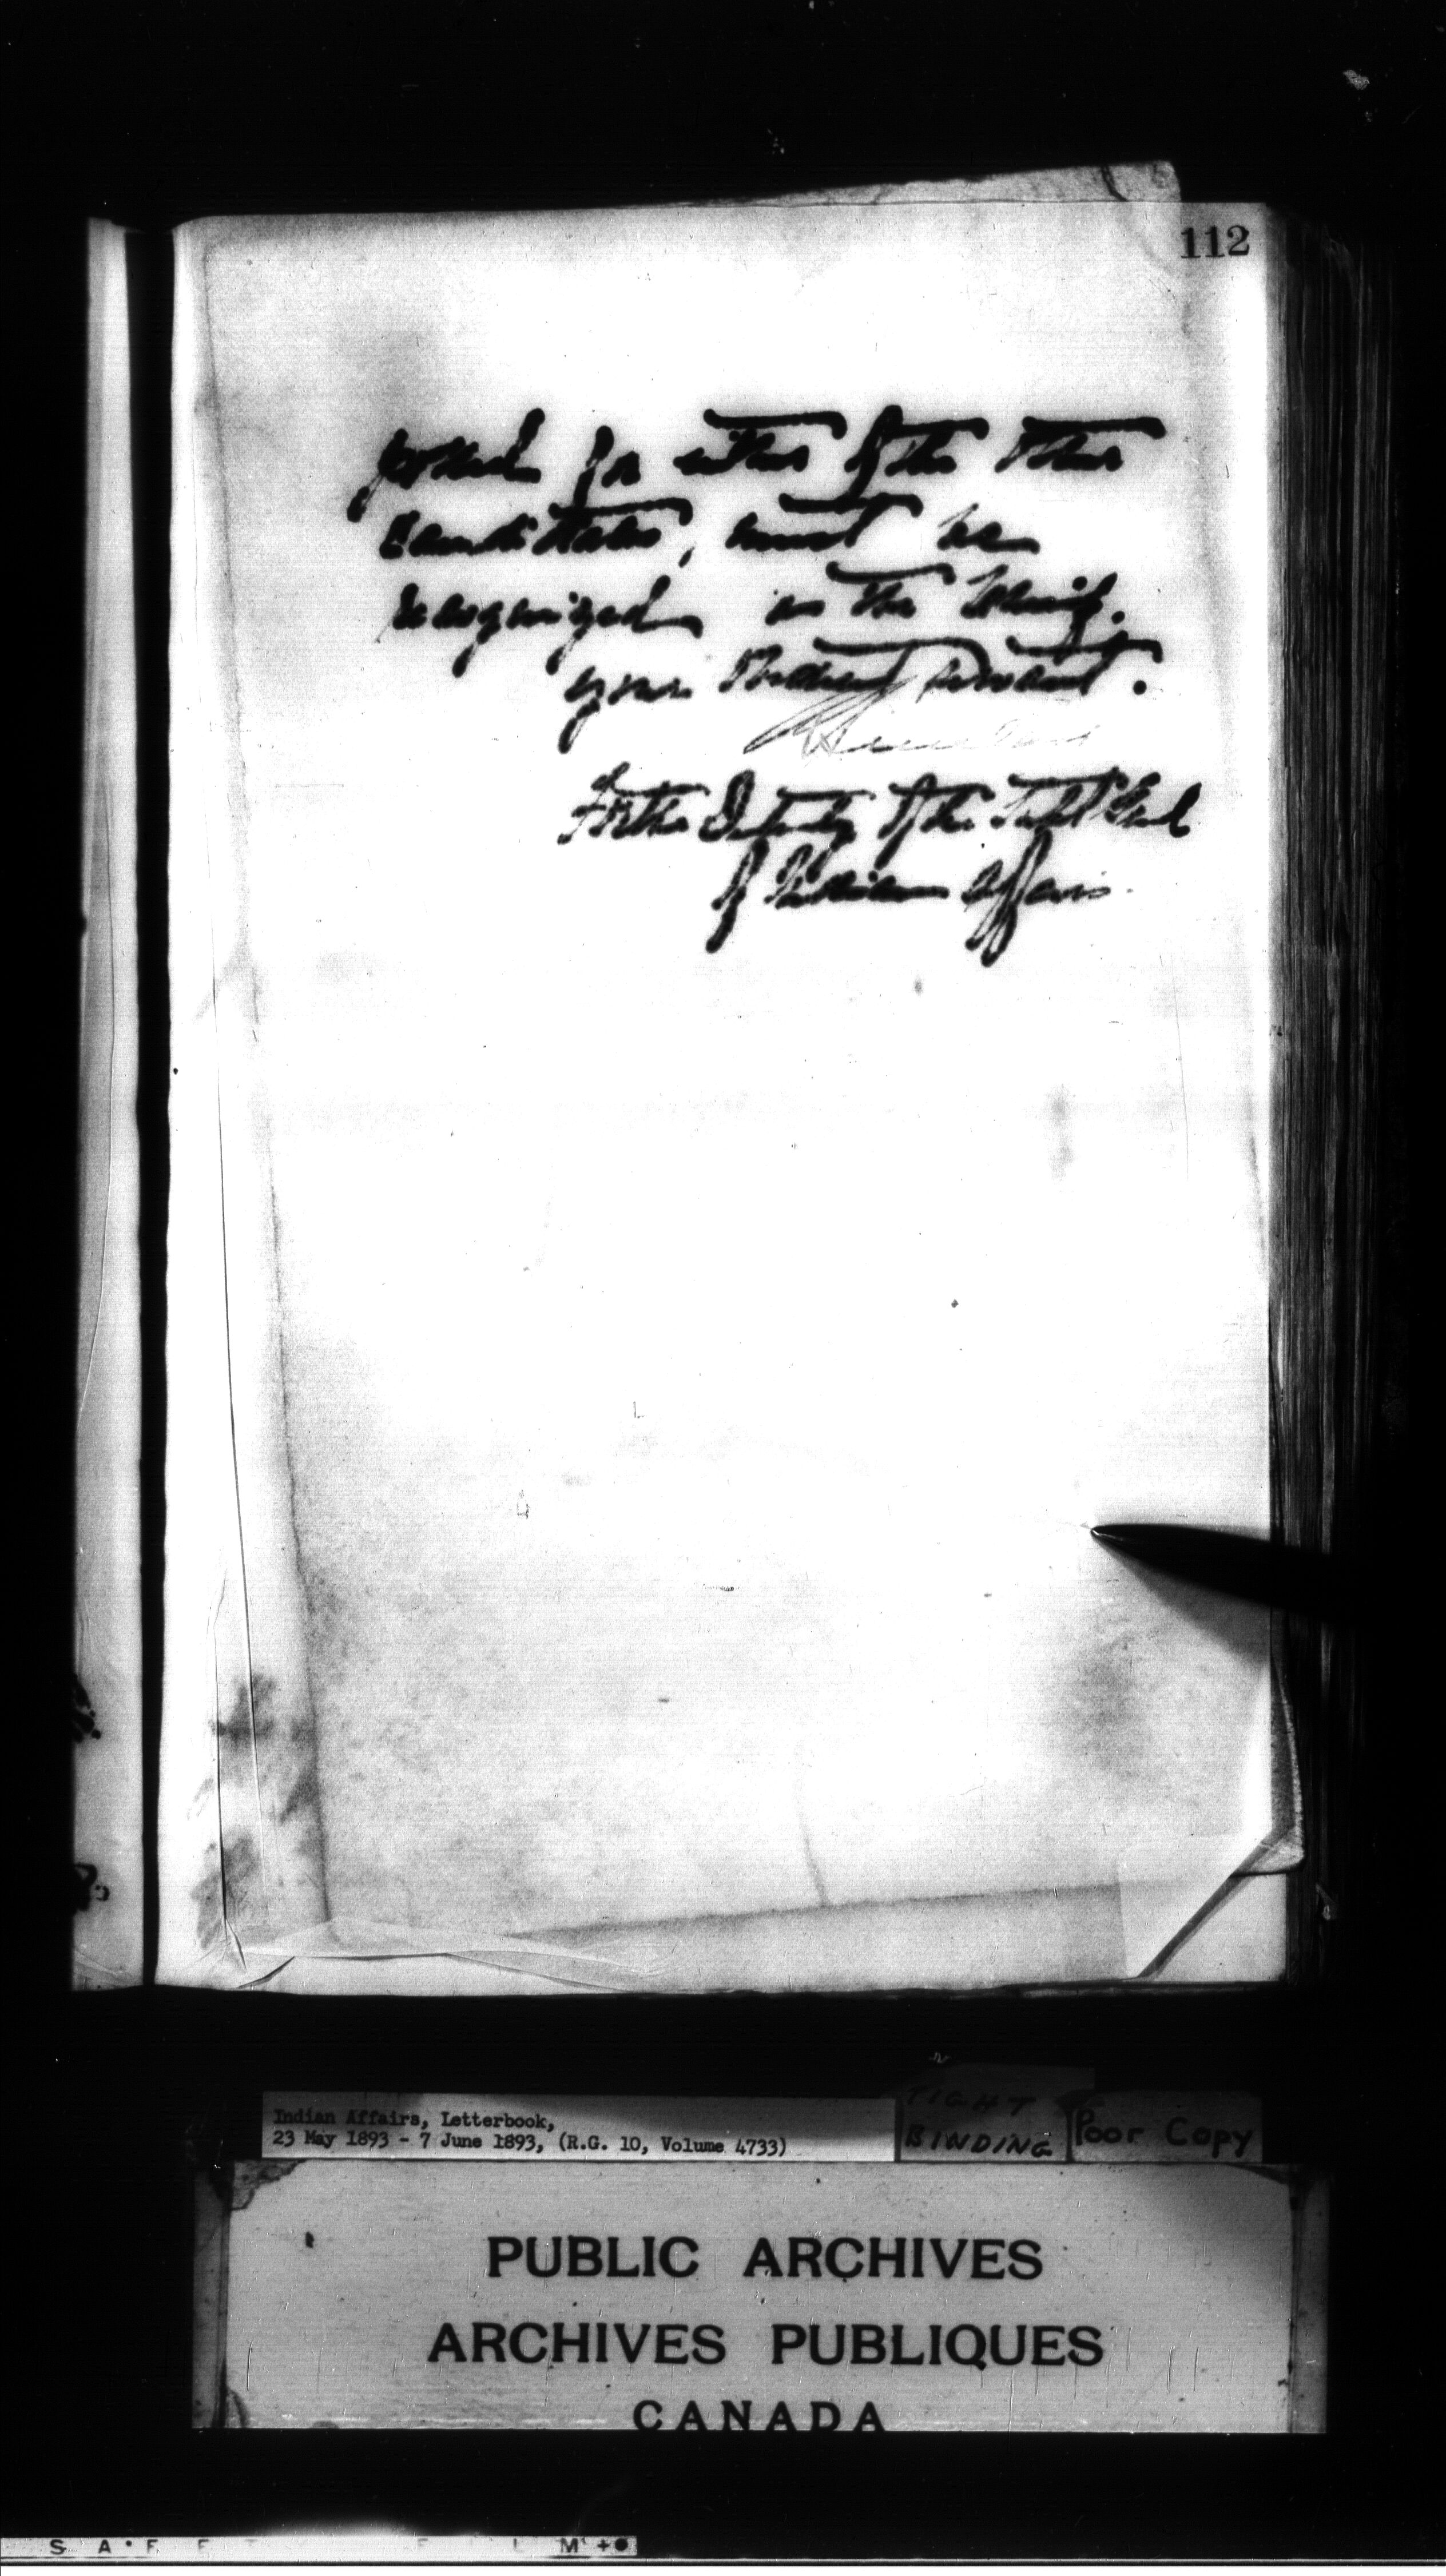 112
polled for either of the other
Candidates, must be
recognized as the Chief.
your obedient servant.
For the Deputy of the Supt Genl
of Indian Affairs.
Indian Affairs, Letterbook,
23 May 1893 - 7 June 1893, (R.G. 10, Volume 4733)
TIGHT
BINDING
Poor Copy
PUBLIC ARCHIVES
ARCHIVES PUBLIQUES
CANADA